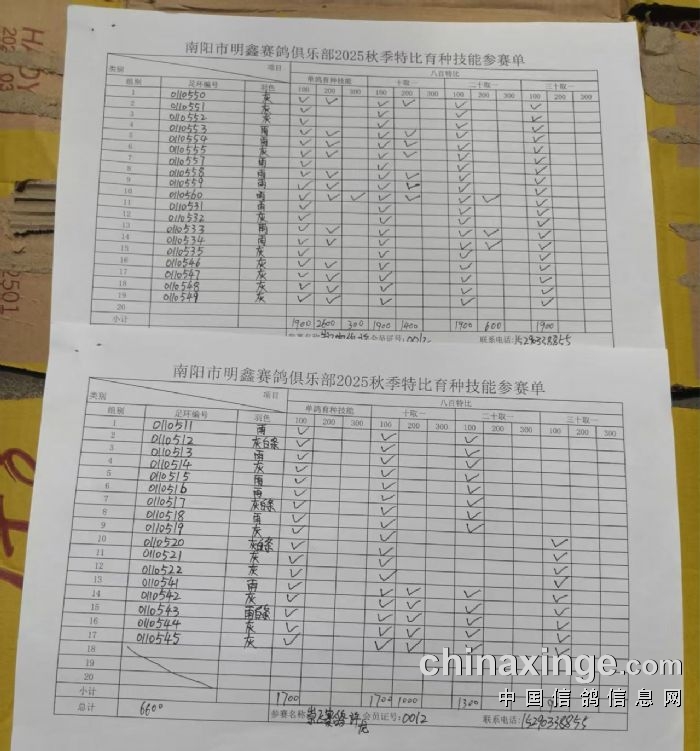 南阳市明鑫赛鸽俱乐部2025秋季特比育种技能参赛单
类别 项目 单鸽育种技能 八百特比
组别 足环编号 羽色 十取一 二十取一 三十取一
100 200 300 100 200 300 100 200 300 100 200 300
1 0110550 灰 ✓ ✓ ✓ ✓ ✓ ✓
2 0110551 灰
3 0110552 灰
4 0110553 雨
5 0110554 雨
6 0110555 灰
7 0110557 雨
8 0110558 雨
9 0110559 雨
10 0110560 雨
11 0110531 雨
12 0110532 灰
13 0110533 雨
14 0110534 雨
15 0110535 灰
16 0110546 灰
17 0110547 灰
18 0110548 灰
19 0110549 灰
20
小计 1900 2600 300 1900 1400 1900 600 1900
会员证号:0012 联系电话:15290338855
南阳市明鑫赛鸽俱乐部2025秋季特比育种技能参赛单
类别 项目 单鸽育种技能 八百特比
组别 足环编号 羽色 十取一 二十取一 三十取一
100 200 300 100 200 300 100 200 300 100 200 300
1 0110511 雨
2 0110512 灰白条
3 0110513 雨
4 0110514 灰
5 0110515 雨
6 0110516 雨
7 0110517 灰白条
8 0110518 雨
9 0110519 灰
10 0110520 灰白条
11 0110521 灰
12 0110522 灰
13 0110541 雨
14 0110542 灰
15 0110543 雨白条
16 0110544 灰
17 0110545 灰
18
19
20
小计 1700 1700 1000 1300
总计 6600 参赛名称: 会员证号:0012 联系电话:15290338855
chinaxinge.com
中国信鸽信息网